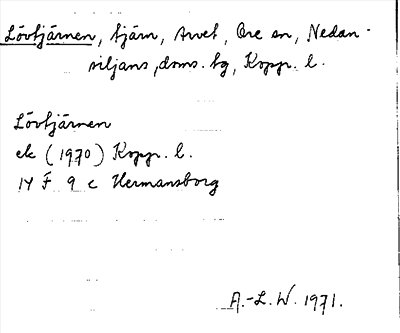 Lövtjärnen, tjärn, Arvet, Ore sn, Nedan-
siljans, doms. tg, Kopp. l.
Lövtjärnen
ek (1970) Kopp. l.
14 F 9 c Hermansborg
A.-L. W. 1971.